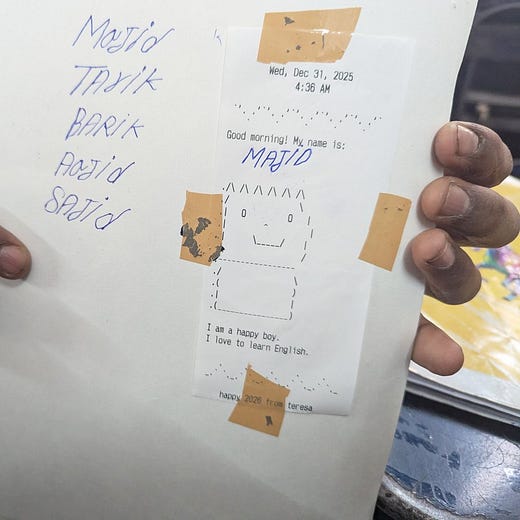 Majid
TARIK
BARIK
Aajid
SAJid
Wed, Dec 31, 2025
4:36 AM
Good morning! My name is:
MAJID
I am a happy boy.
I love to learn English.
happy 2026 from teresa